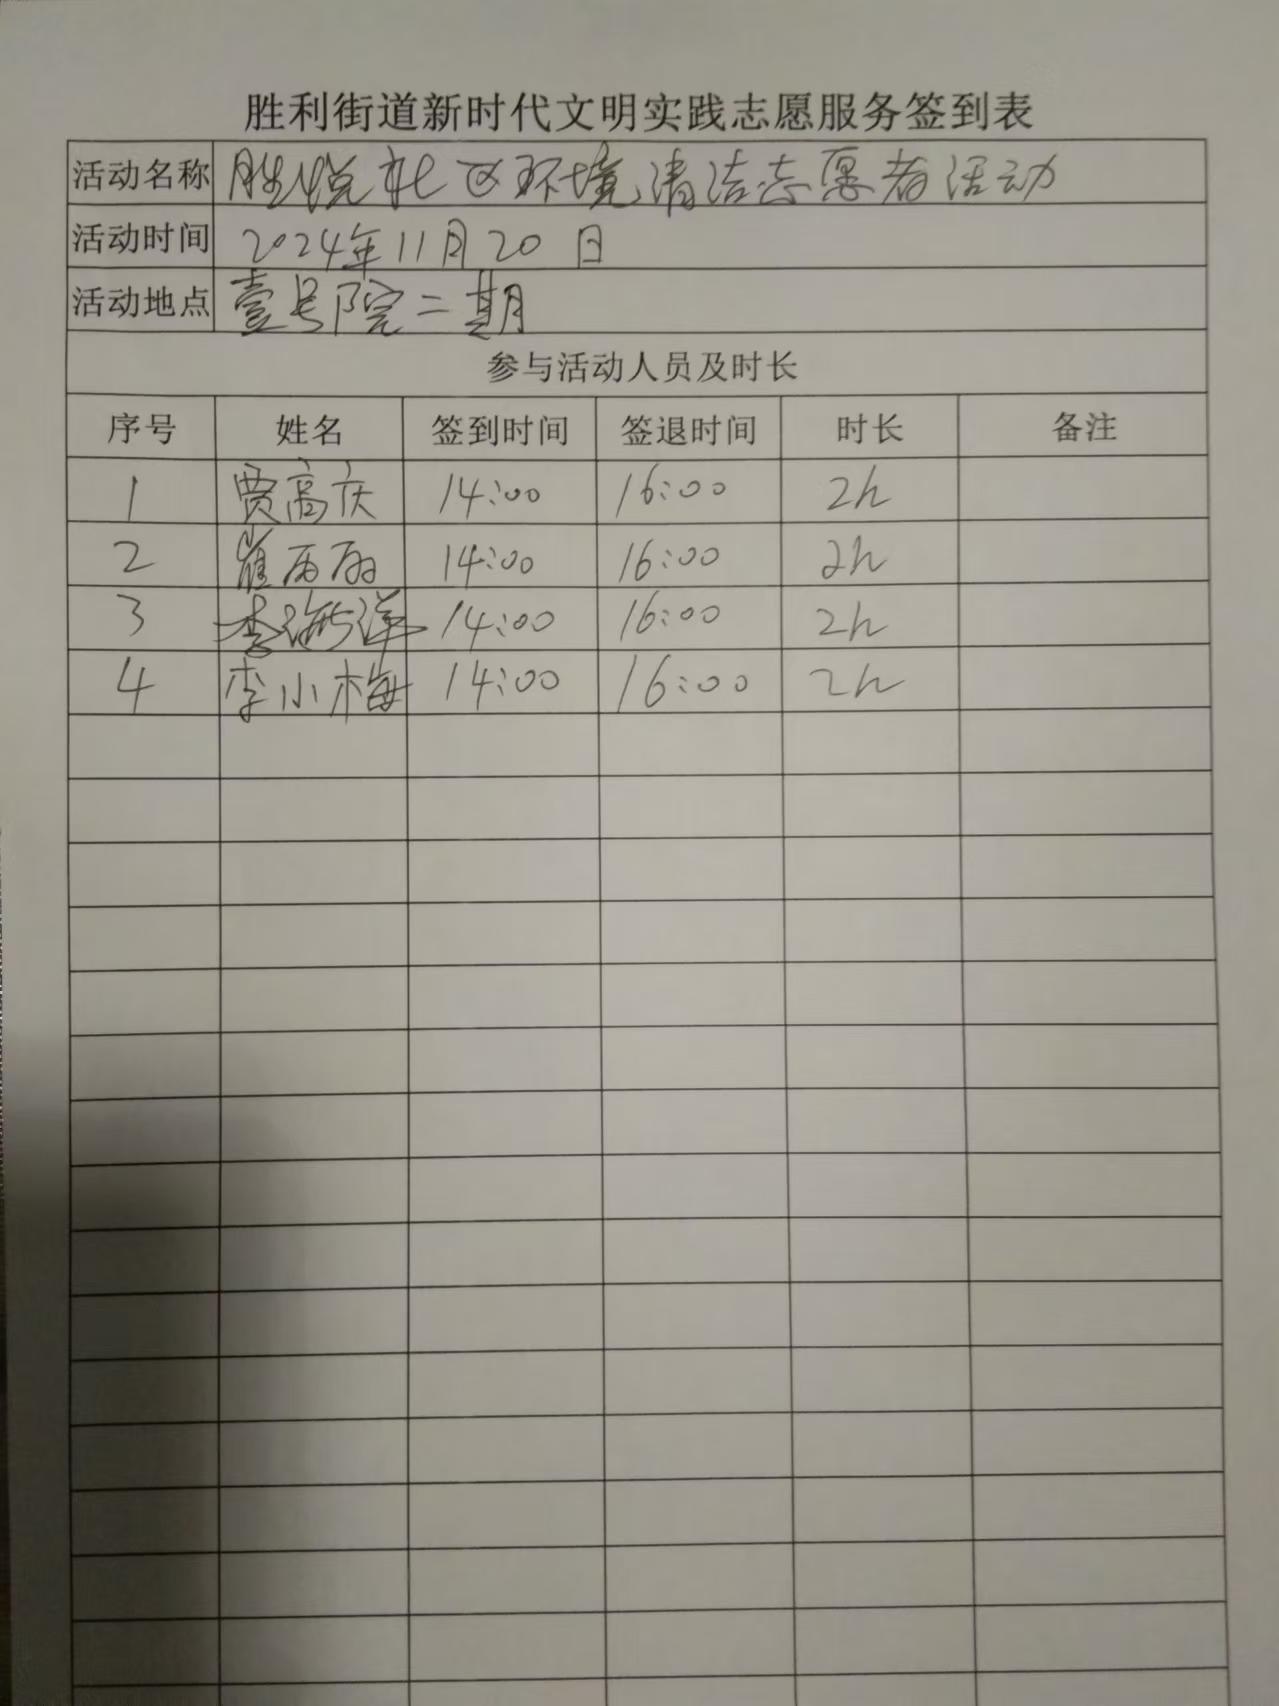 胜利街道新时代文明实践志愿服务签到表
活动名称 胜悦社区环境清洁志愿者活动
活动时间 2024年11月20日
活动地点 壹号院二期
参与活动人员及时长
序号 姓名 签到时间 签退时间 时长 备注
1 贾高庆 14:00 16:00 2h
2 崔丙雨 14:00 16:00 2h
3 李海洋 14:00 16:00 2h
4 李小梅 14:00 16:00 2h